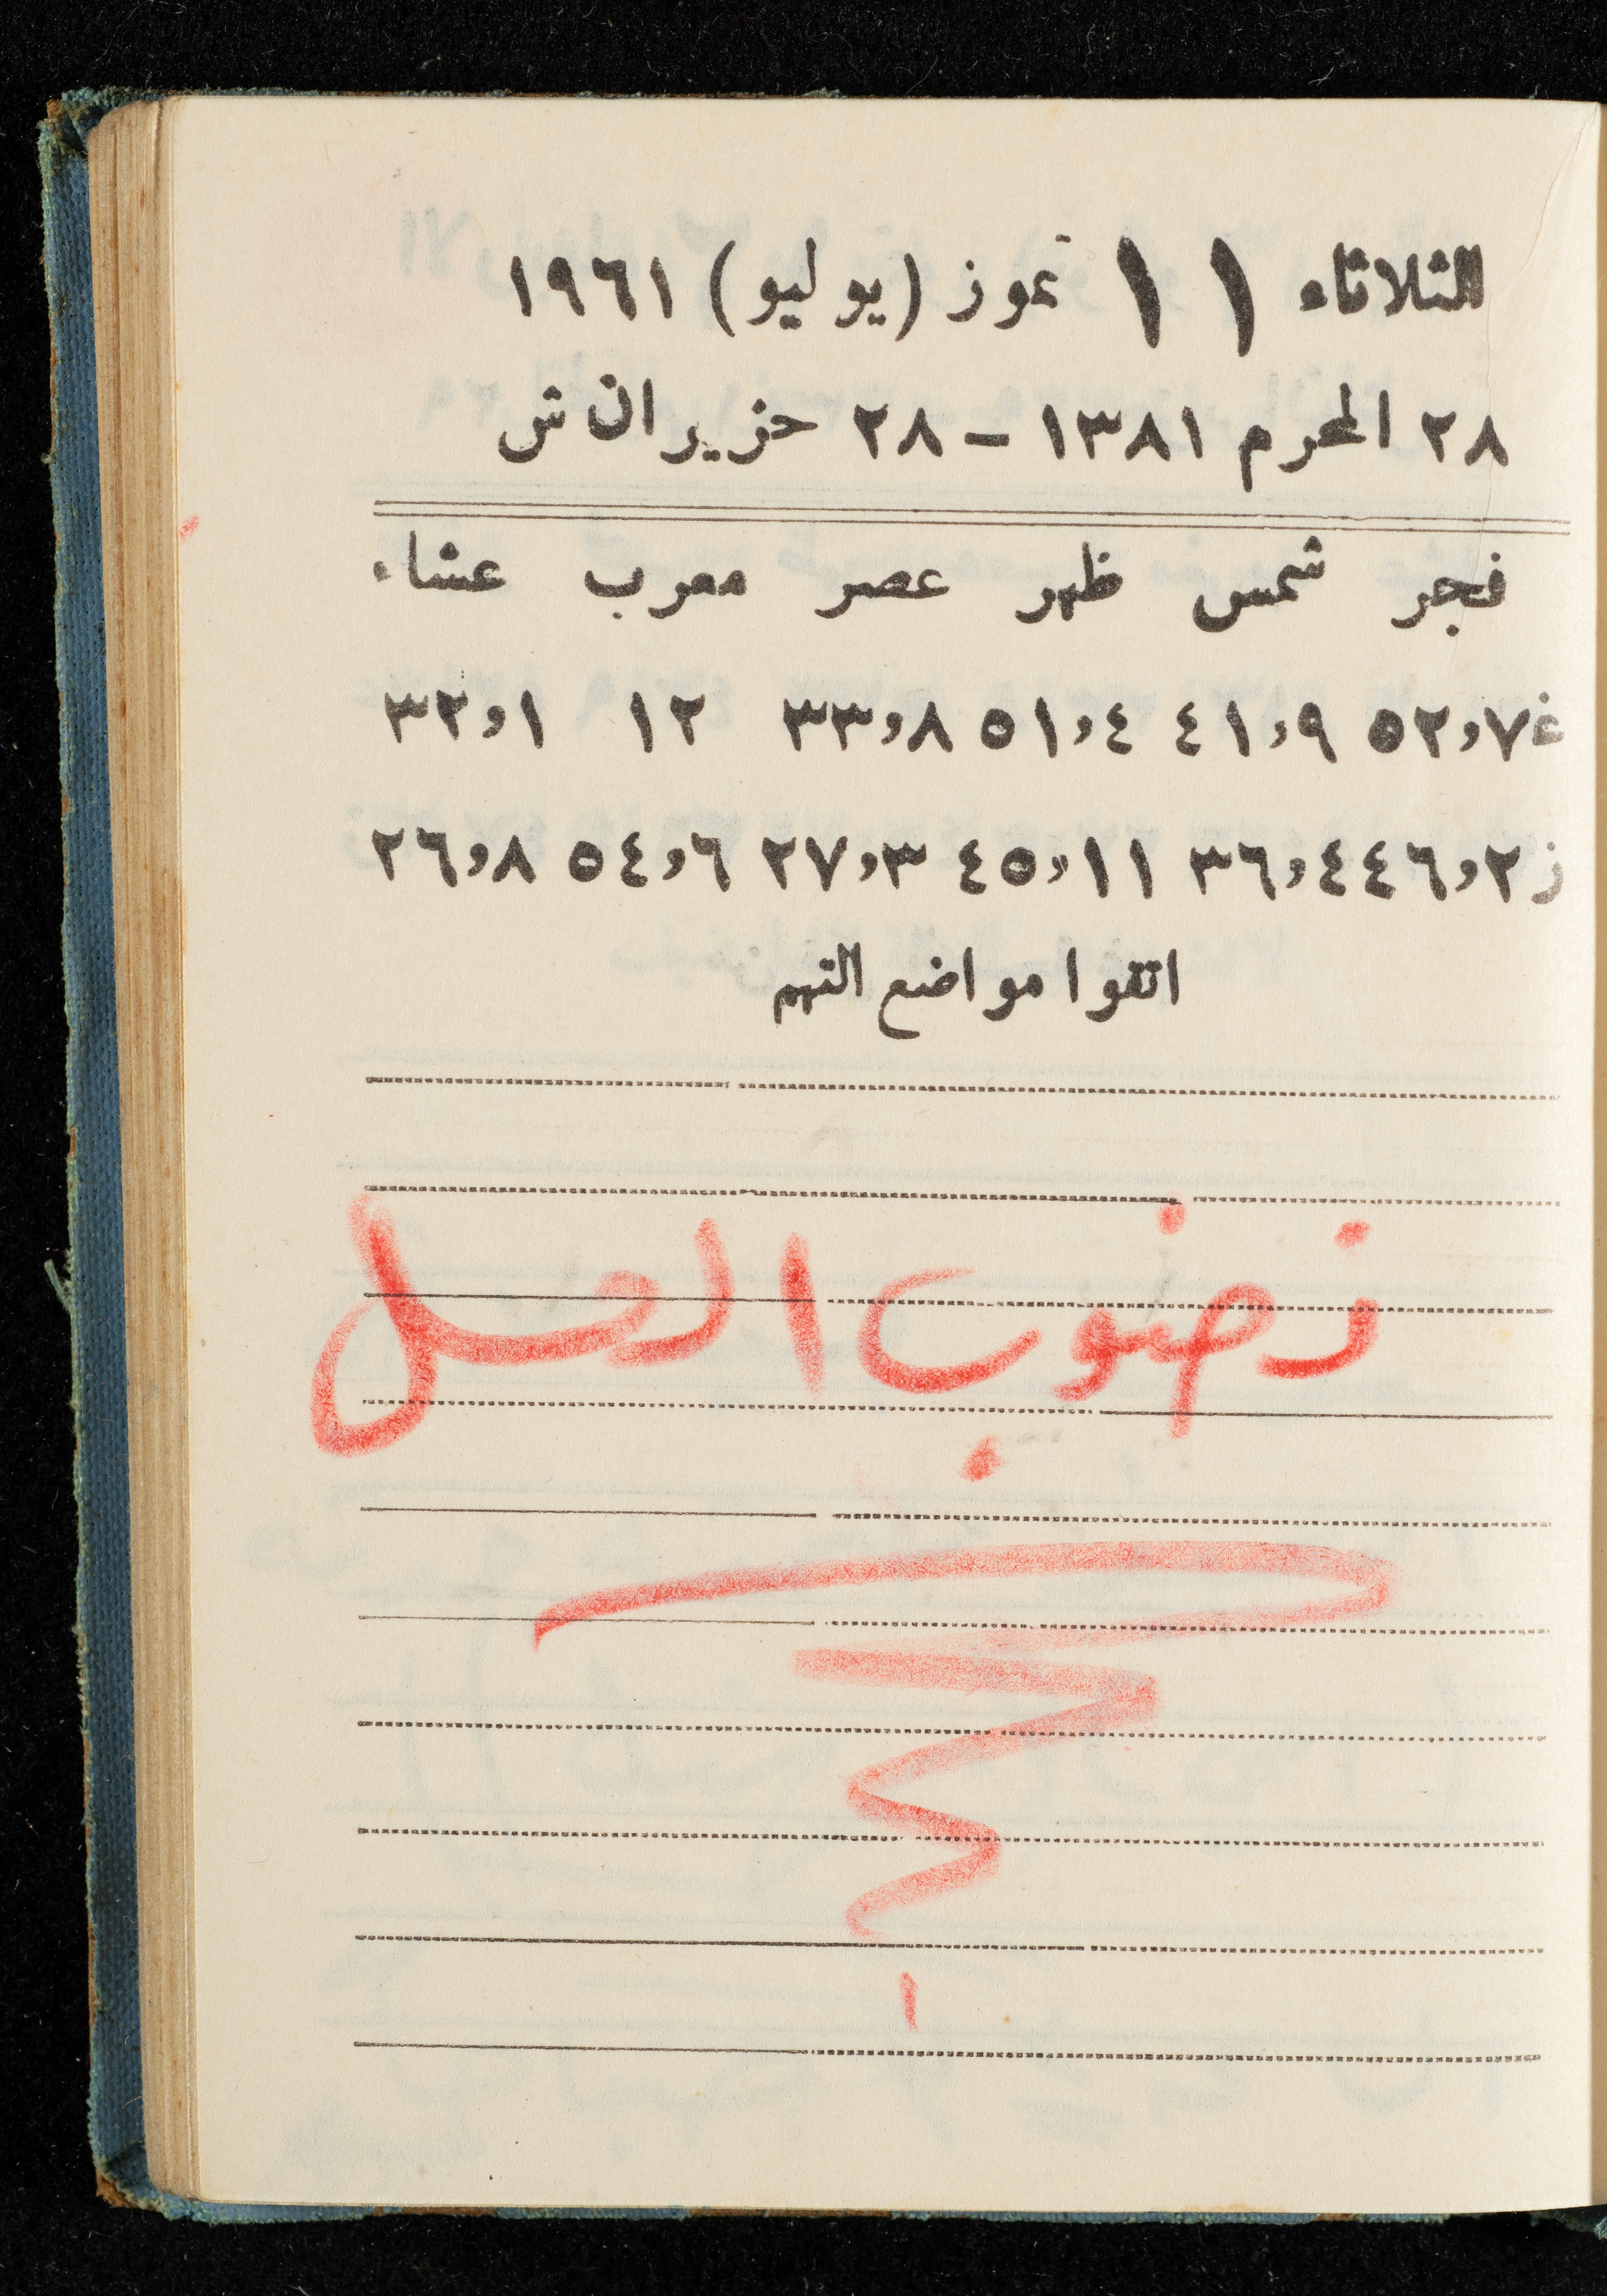 الثلاثاء ١١ تموز (يوليو) ١٩٦١
٢٨ المحرم ١٣٨١ – ٢٨ حزيران ش
فجر شمس ظهر عصر مغرب عشاء
غ ٧,٥٢ ٩,٤١ ٤,٥١ ٨,٣٣ ١٢ ١,٣٢
ز ٢,٤٦ ٤,٣٦ ١١,٤٥ ٣,٢٧ ٦,٥٤ ٨,٢٦
اتقوا مواضع التهم